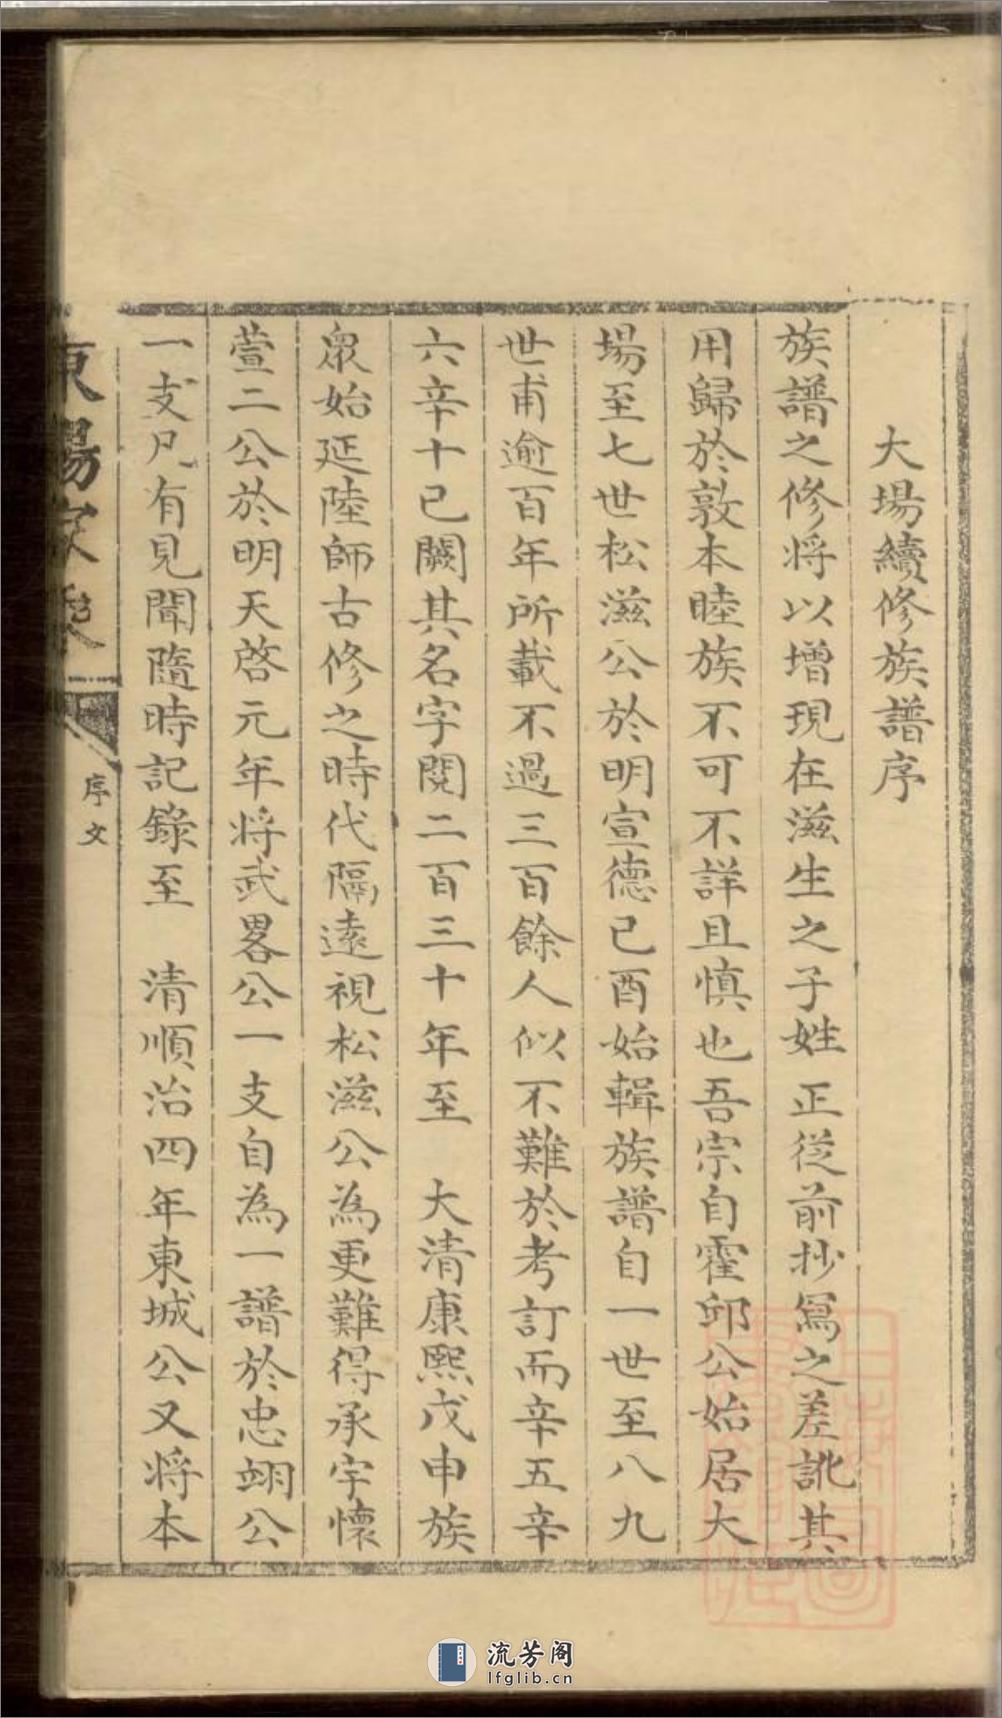 大場續修族譜序
族譜之修將以增現在滋生之子姓正從前抄寫之差訛其
用歸於敦本睦族不可不詳且慎也吾宗自霍邱公始居大
場至七世松滋公於明宣德己酉始輯族譜自一世至八九
世甫逾百年所載不過三百餘人似不難於考訂而辛五辛
六辛十已闕其名字閱二百三十年至　大清康熙戊申族
衆始延陸師古修之時代隔遠視松滋公為更難得承宇懷
萱二公於明天啓元年將武畧公一支自為一譜於忠翊公
一支凡有見聞隨時記錄至　清順治四年東城公又將本
東陽家
序文
流芳阁
lfglib.cn